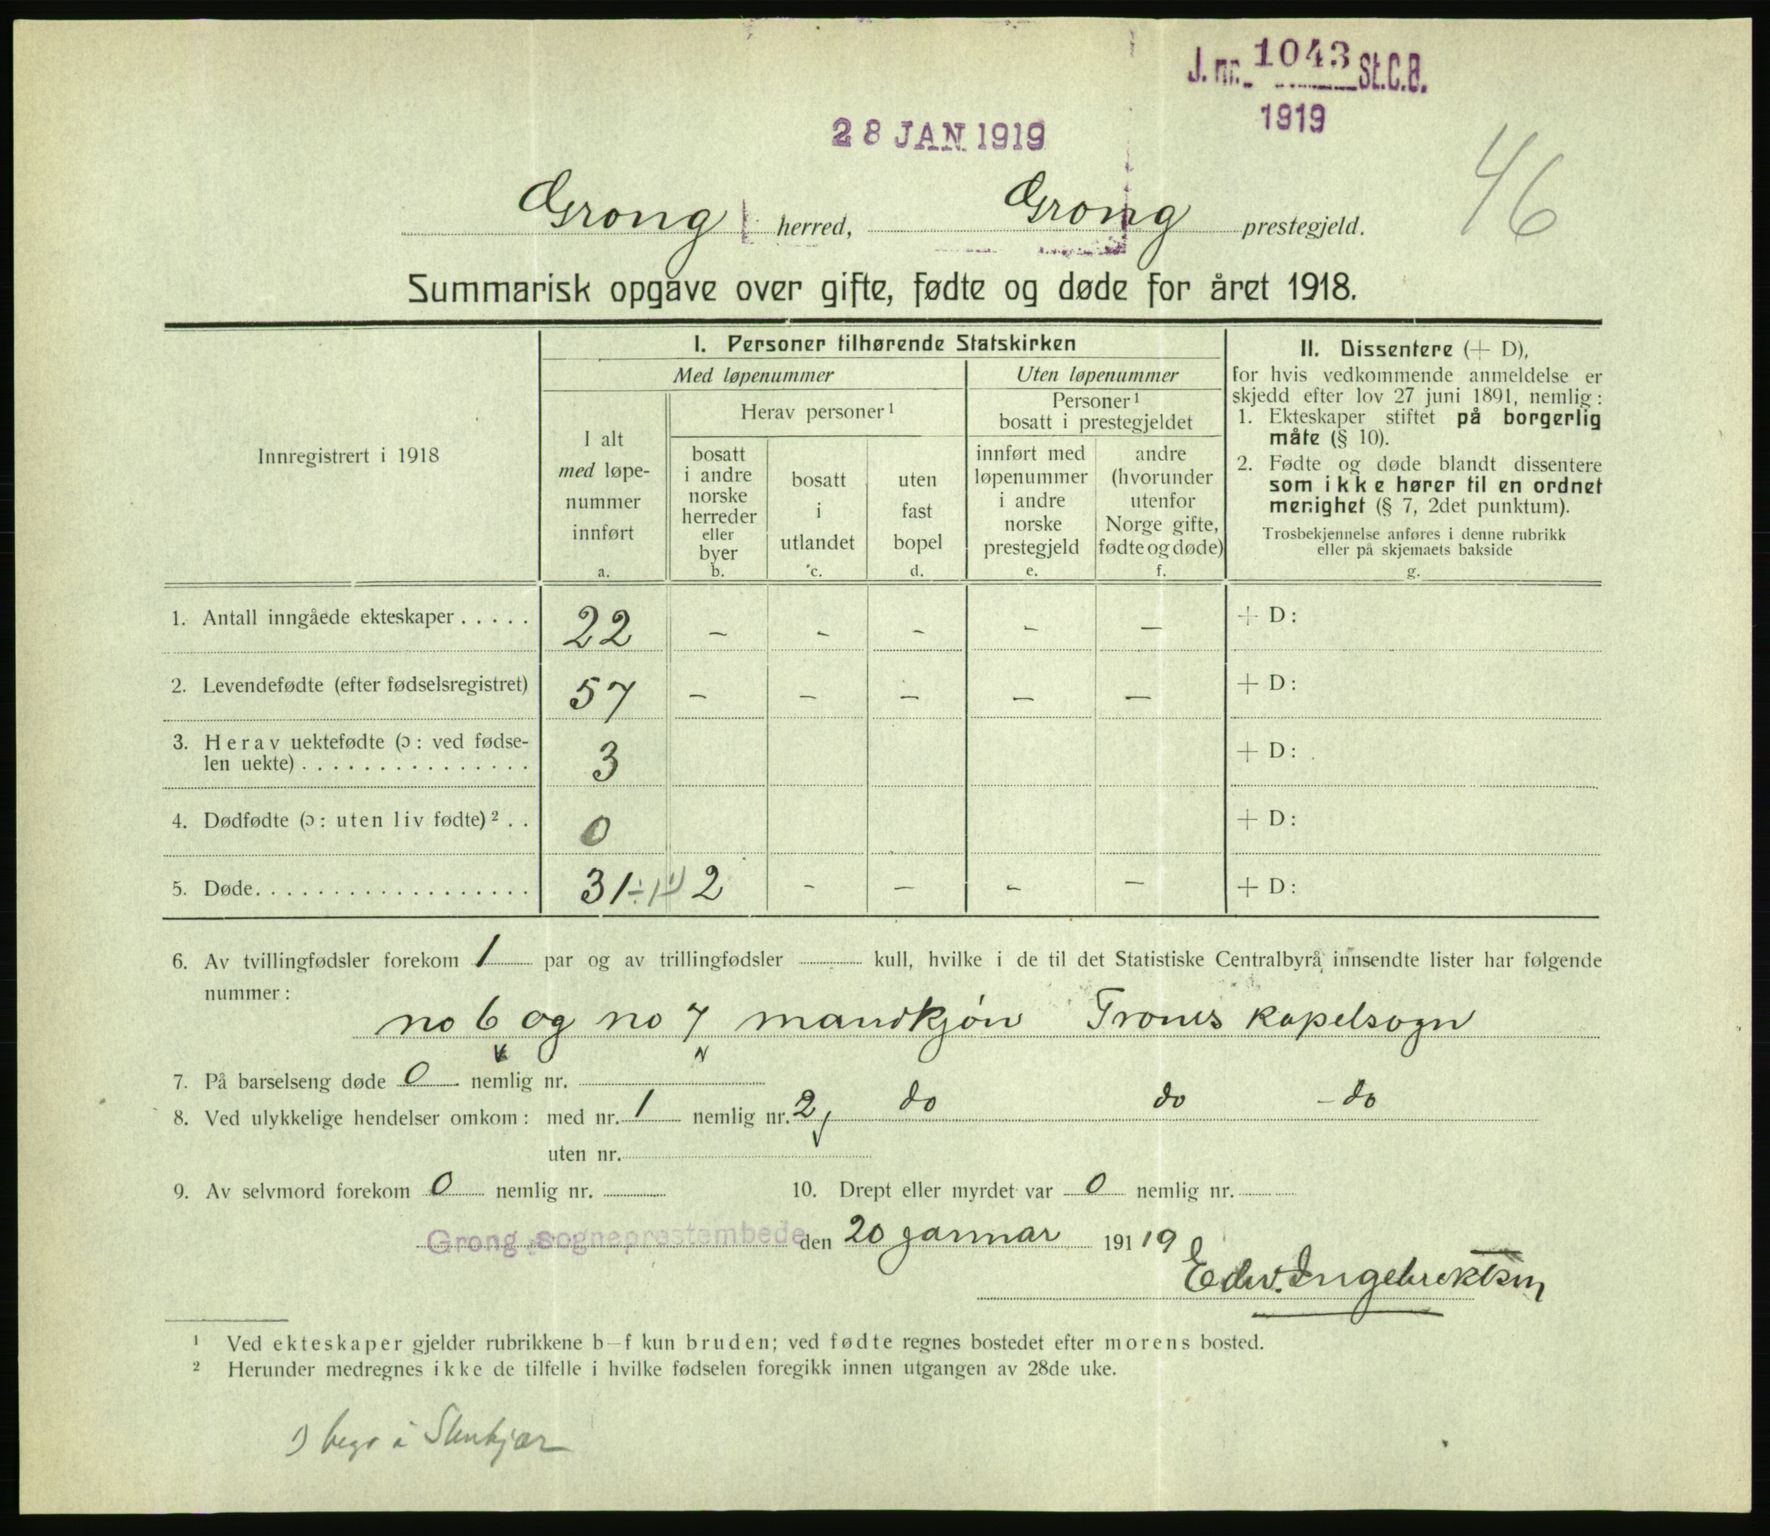 J. nr. 1043 St.C.B.
1919
28 JAN 1919
46
Grong herred, Grong prestegjeld.
Summarisk opgave over gifte, fødte og døde for året 1918.
Innregistrert i 1918
I. Personer tilhørende Statskirken
Med løpenummer
Uten løpenummer
I alt
med løpe-
nummer
innført
a.
Herav personer¹
bosatt
i andre
norske
herreder
eller
byer
b.
bosatt
i
utlandet
c.
uten
fast
bopel
d.
Personer¹
bosatt i prestegjeldet
innført med
løpenummer
i andre
norske
prestegjeld
e.
andre
(hvorunder
utenfor
Norge gifte,
fødte og døde)
f.
II. Dissentere (+ D),
for hvis vedkommende anmeldelse er
skjedd efter lov 27 juni 1891, nemlig:
1. Ekteskaper stiftet på borgerlig
måte (§ 10).
2. Fødte og døde blandt dissentere
som ikke hører til en ordnet
menighet (§ 7, 2det punktum).
Trosbekjennelse anføres i denne rubrikk
eller på skjemaets bakside
g.
1. Antall inngåede ekteskaper ..... 22 – – – – – + D:
2. Levendefødte (efter fødselsregistret) 57 – – – – – + D:
3. Herav uektefødte (ɔ: ved fødse-
len uekte) ............... 3 + D:
4. Dødfødte (ɔ: uten liv fødte)² .. 0 + D:
5. Døde.................. 31 ÷1¹) 2 – – – – + D:
6. Av tvillingfødsler forekom 1 par og av trillingfødsler kull, hvilke i de til det Statistiske Centralbyrå innsendte lister har følgende
nummer:
no 6 og no 7 mandkjøn Trones kapelsogn
7. På barselseng døde 0 nemlig nr.
8. Ved ulykkelige hendelser omkom: med nr. 1 nemlig nr. 2, do do – do
uten nr.
9. Av selvmord forekom 0 nemlig nr. 10. Drept eller myrdet var 0 nemlig nr.
Grong sogneprestembede den 20 januar 191 19
Edv. Ingebrektsen
¹ Ved ekteskaper gjelder rubrikkene b–f kun bruden; ved fødte regnes bostedet efter morens bosted.
² Herunder medregnes ikke de tilfelle i hvilke fødselen foregikk innen utgangen av 28de uke.
1) begr i Stenkjær